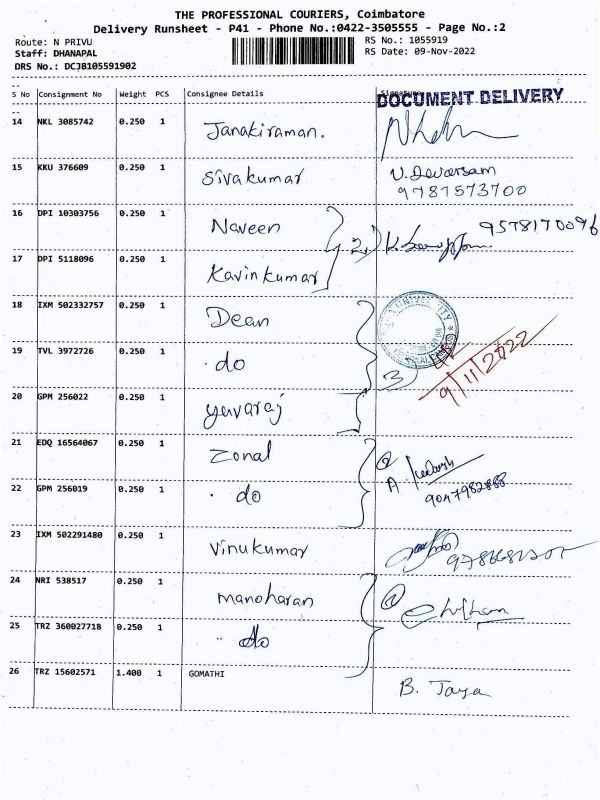 THE PROFESSIONAL COURIERS, Coimbatore
Delivery Runsheet - P41 - Phone No.:0422-3505555 - Page No.:2
Route: N PRIVU RS No.: 1055919
Staff: DHANAPAL RS Date: 09-Nov-2022
DRS No.: DCJB105591902
S No Consignment No Weight PCS Consignee Details Signature
DOCUMENT DELIVERY
14 NKL 3085742 0.250 1 Janakiraman.
15 KKU 376609 0.250 1 Sivakumar
9787573700
16 DPI 10303756 0.250 1 Naveen 2) 9578170096
17 DPI 5118096 0.250 1 Kavinkumar
18 IXM 502332757 0.250 1 Dean UNIVERSITY
19 TVL 3972726 0.250 1 do 3 9/11/2022
20 GPM 256022 0.250 1 yuvaraj
21 EDQ 16564067 0.250 1 Zonal
22 GPM 256019 0.250 1 do A
9047982888
23 IXM 502291480 0.250 1 Vinukumar
24 NRI 538517 0.250 1 manoharan
25 TRZ 360027718 0.250 1 do
26 TRZ 15602571 1.400 1 GOMATHI B. Jaya